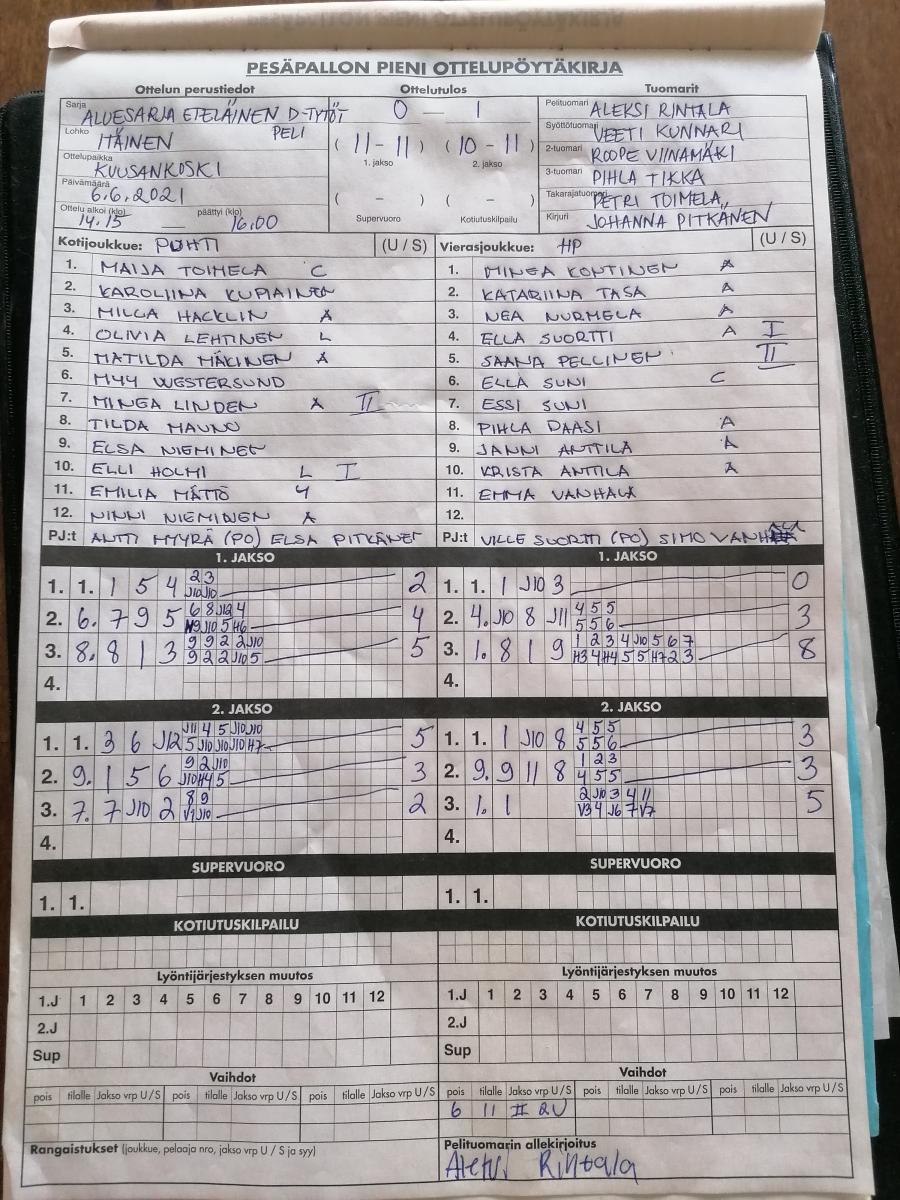 PESÄPALLON PIENI OTTELUPÖYTÄKIRJA
Ottelun perustiedot Ottelutulos Tuomarit
Sarja ALUESARJA ETELÄINEN D-TYTÖT PELI
0 — 1
Pelituomari ALEKSI RINTALA
Lohko ITÄINEN
(11 - 11) (10 - 11)
1. jakso 2. jakso
Syöttötuomari VEETI KUNNARI
Ottelupaikka KUUSANKOSKI
2-tuomari ROOPE VIINAMÄKI
Päivämäärä 6.6.2021
( - ) ( - )
3-tuomari PIHLA TIKKA
Ottelu alkoi (klo) 14.15 — päättyi (klo) 16.00
Supervuoro Kotiutuskilpailu
Takarajatuomari PETRI TOIMELA,
Kirjuri JOHANNA PITKÄNEN
Kotijoukkue: POHTI (U / S) Vierasjoukkue: HP (U / S)
1. MAIJA TOIMELA C
2. KAROLIINA KUPIAINEN
3. MILLA HACKLIN A
4. OLIVIA LEHTINEN L
5. MATILDA MÄKINEN A
6. MYY WESTERSUND
7. MINEA LINDEN A II
8. TILDA MAUNO
9. ELSA NIEMINEN
10. ELLI HOLMI L I
11. EMILIA MÄTTÖ 4
12. NINNI NIEMINEN A
PJ:t ANTTI MYYRÄ (PO) ELSA PITKÄNEN
1. MINEA KONTINEN A
2. KATARIINA TASA A
3. NEA NURMELA A
4. ELLA SUORTTI A I
5. SAANA PELLINEN II
6. ELLA SUNI C
7. ESSI SUNI
8. PIHLA DAASI A
9. JANNI ANTTILA A
10. KRISTA ANTTILA A
11. EMMA VANHALA
12.
PJ:t VILLE SUORTTI (PO) SIMO
1. JAKSO
1. 1. 1 5 4 2 3 2
J10 J10
2. 6. 7 9 5 6 8 J12 4 4
N9 J10 5 H6
3. 8. 8 1 3 9 9 2 2 J10 5
9 2 2 J10 5
4.
1. JAKSO
1. 1. 1 J10 3 0
2. 4. J10 8 J11 4 5 5 3
5 5 6
3. 1. 8 1 9 1 2 3 4 J10 5 6 7 8
H3 4 H4 5 5 H7 2 3
4.
2. JAKSO
1. 1. 3 6 J12 J11 4 5 J10 J10 5
5 J10 J10 J10 H7
2. 9. 1 5 6 9 2 J10 3
J10 H4 5
3. 7. 7 J10 2 8 9 2
V7 J10
4.
2. JAKSO
1. 1. 1 J10 8 4 5 5 3
5 5 6
2. 9. 9 11 8 1 2 3 3
4 5 5
3. 1. 1 2 J10 3 4 11 5
V3 4 J6 7 V7
4.
SUPERVUORO SUPERVUORO
1. 1. 1. 1.
KOTIUTUSKILPAILU KOTIUTUSKILPAILU
Lyöntijärjestyksen muutos Lyöntijärjestyksen muutos
1.J 1 2 3 4 5 6 7 8 9 10 11 12 1.J 1 2 3 4 5 6 7 8 9 10 11 12
2.J 2.J
Sup Sup
Vaihdot Vaihdot
pois tilalle Jakso vrp U / S pois tilalle Jakso vrp U / S pois tilalle Jakso vrp U / S pois tilalle Jakso vrp U / S pois tilalle Jakso vrp U / S pois tilalle Jakso vrp U / S
6 11 II 2U
Rangaistukset (joukkue, pelaaja nro, jakso vrp U / S ja syy)
Pelituomarin allekirjoitus
Aleksi Rintala